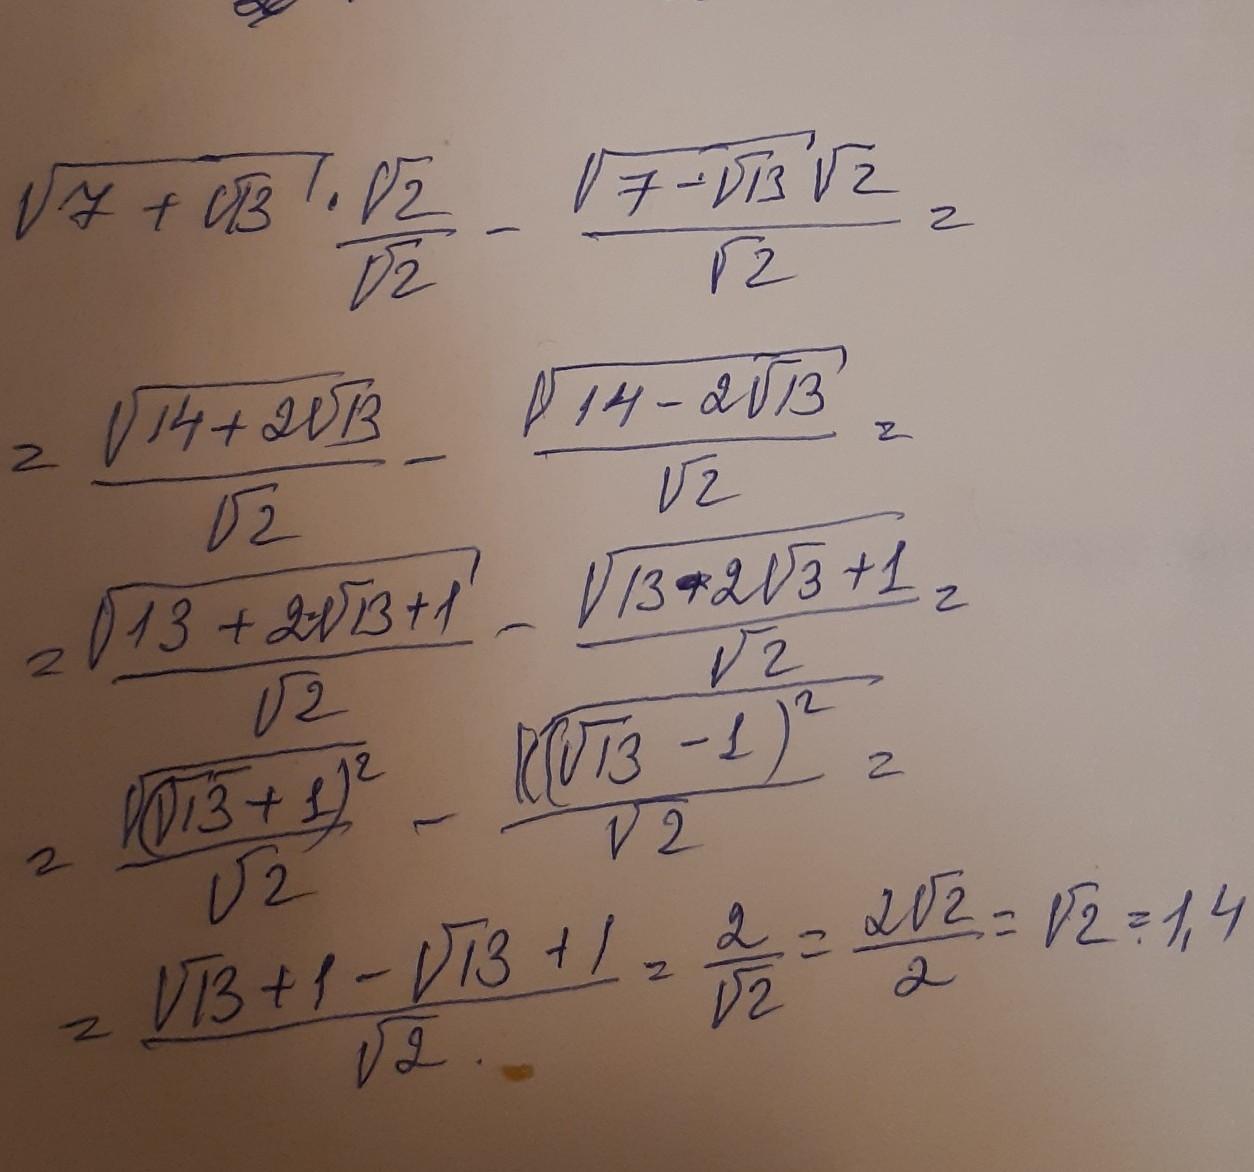 √(7 + √13) · √2/√2 - √(7 - √13) √2/√2 =
= √(14 + 2√13)/√2 - √(14 - 2√13)/√2 =
= √(13 + 2√13 + 1)/√2 - √(13 - 2√3 + 1)/√2 =
= √((√13 + 1)²)/√2 - √((√13 - 1)²)/√2 =
= (√13 + 1 - √13 + 1)/√2 = 2/√2 = 2√2/2 = √2 = 1,4